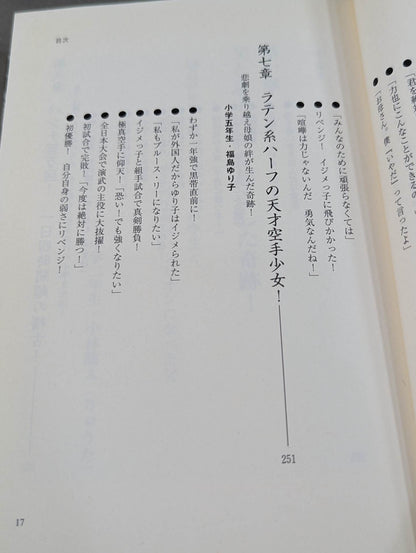 目次
「君を
「力也にこんなことができるの
「お母さん、僕(いやだ)って言ったよ
●「みんなのために頑張らなくては」
●リベンジ! イジメっ子に飛びかかった!
●「喧嘩は力じゃないんだ 勇気なんだね!」
第七章 ラテン系ハーフの天才空手少女! 251
悲劇を乗り越え母娘の絆が生んだ奇跡!
小学五年生・福島ゆり子
●わずか一年強で黒帯直前に!
●「私が外国人だからゆり子はイジメられた」
●「私もブルース・リーになりたい」
●イジメっ子と組手試合で真剣勝負!
●極真空手に仰天!「恐い!でも強くなりたい」
●全日本大会で演武の主役に大抜擢!
●初試合で完敗!「今度は絶対に勝つ!」
●初優勝! 自分自身の弱さにリベンジ!
17